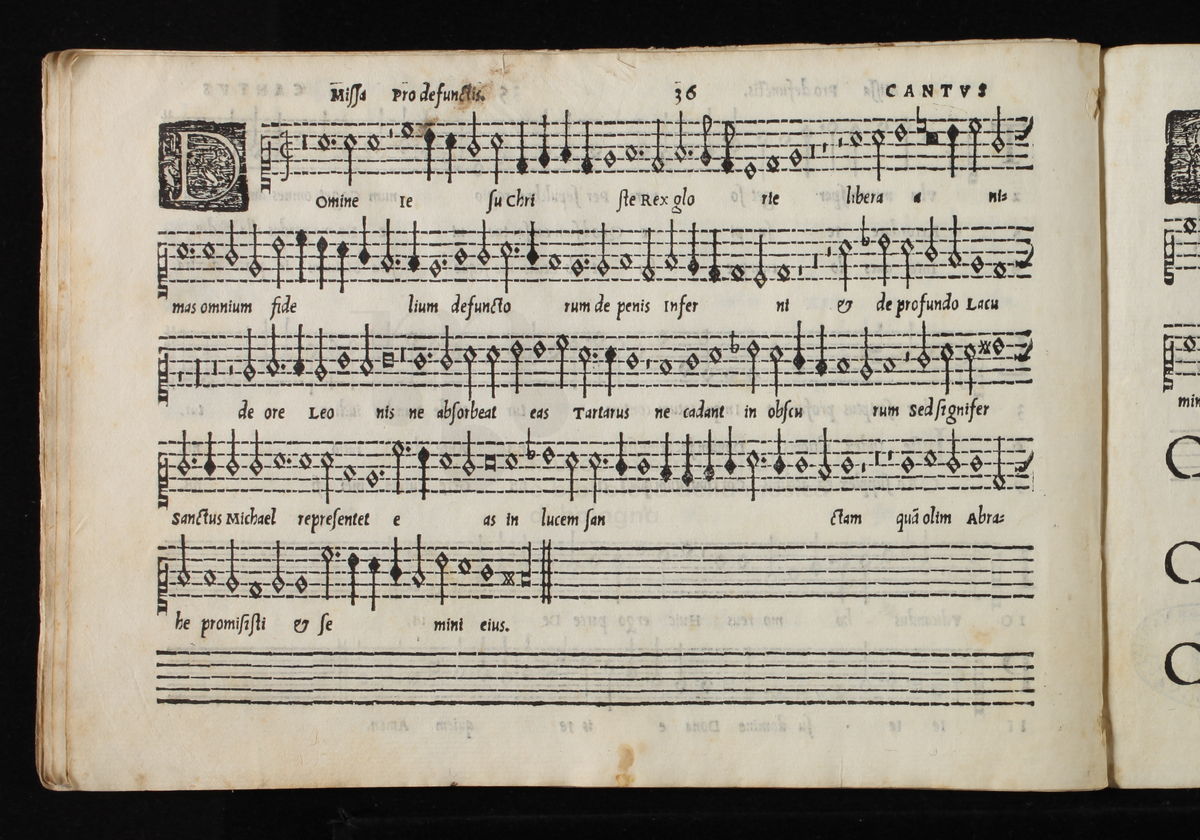 Missa Pro defunctis. 36 CANTVS
DOmine Ie su Chri ste Rex glo rie libera a nis=
mas omnium fide lium defuncto rum de penis Infer ni & de profundo Lacu
de ore Leo nis ne absorbeat eas Tartarus ne cadant in obscu rum Sed signifer
Sanctus Michael representet e as in lucem san ctam quã olim Abra=
he promisisti & se mini eius.
min